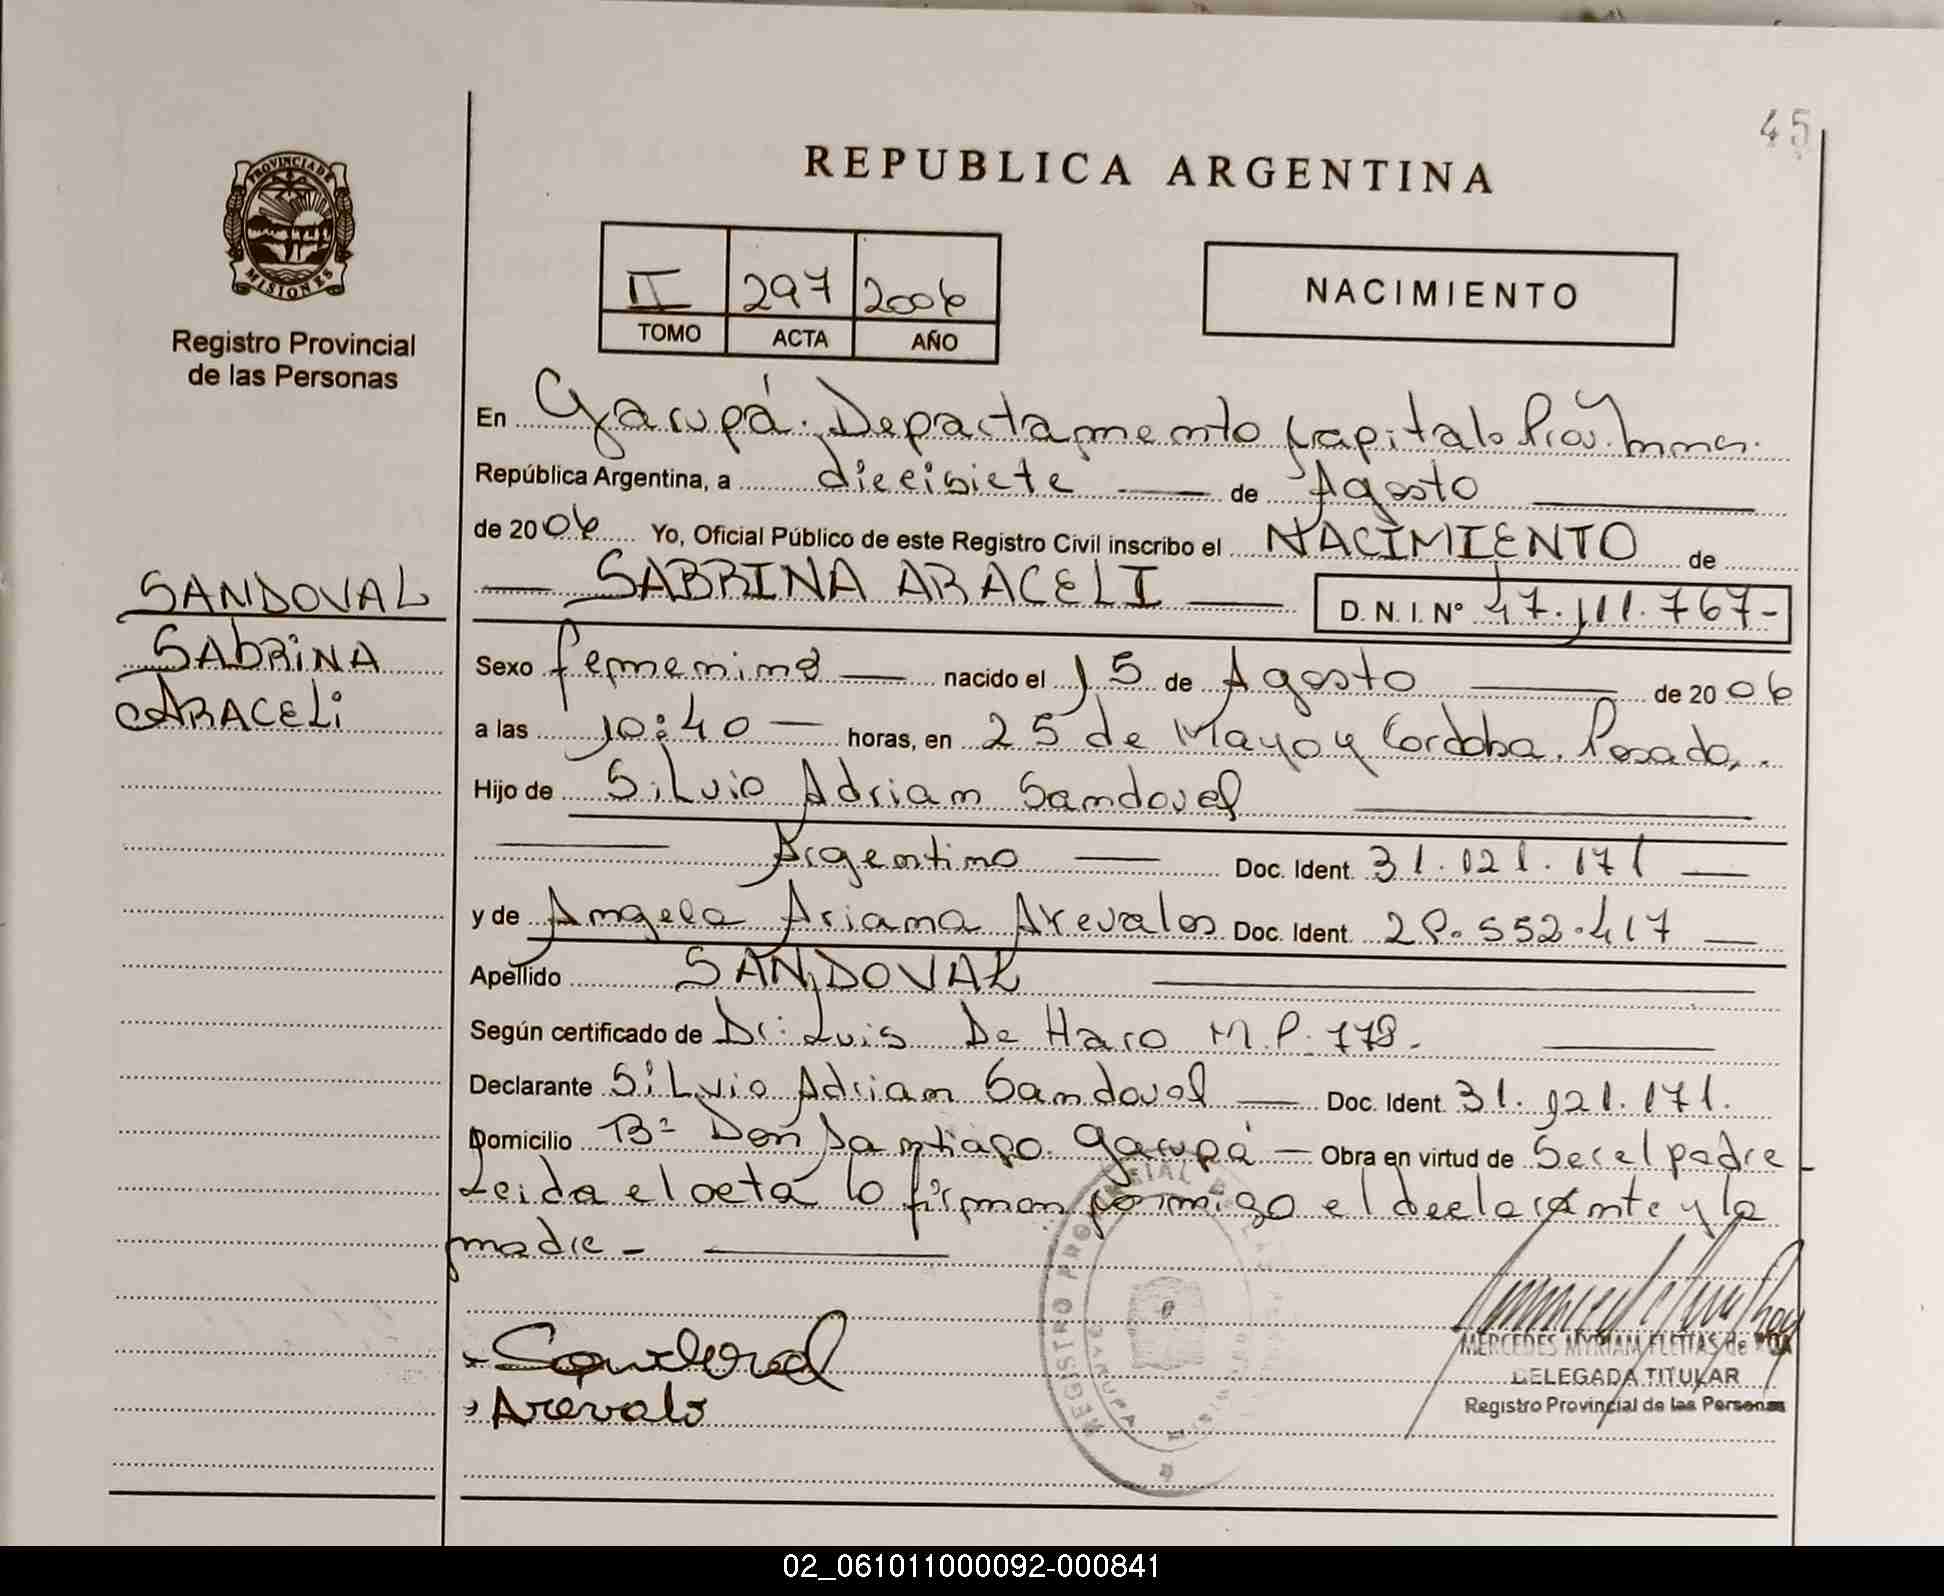 45
REPUBLICA ARGENTINA
PROVINCIA DE
MISIONES
Registro Provincial
de las Personas
II 297 2006
TOMO ACTA AÑO
NACIMIENTO
En Garupá. Departamento Capital. Prov. Mnes.
República Argentina, a diecisiete de Agosto
de 2006 Yo, Oficial Público de este Registro Civil inscribo el NACIMIENTO de
SABRINA ARACELI D. N. I. Nº 47.111.767-
SANDOVAL
SAbRiNA
ARACELi
Sexo femenino nacido el 15 de Agosto de 2006
a las 10:40 horas, en 25 de Mayo y Cordoba. Posadas.
Hijo de Silvio Adrian Sandoval
Argentino Doc. Ident. 31.021.171
y de Angela Ariana Arevalos Doc. Ident. 28.552.417
Apellido SANDOVAL
Según certificado de Dr: Luis De Haro M.P. 778.
Declarante Silvio Adrian Sandoval Doc. Ident. 31.021.171.
Domicilio Bº Don Santiago. Garupá Obra en virtud de Ser el padre -
Leida el acta lo firman conmigo el declarante y la
madre -
Sandoval
Arevalo
REGISTRO PROVINCIAL DE LAS
GARUPA
MERCEDES MYRIAM FLEITAS de
DELEGADA TITULAR
Registro Provincial de las Personas
02_061011000092-000841